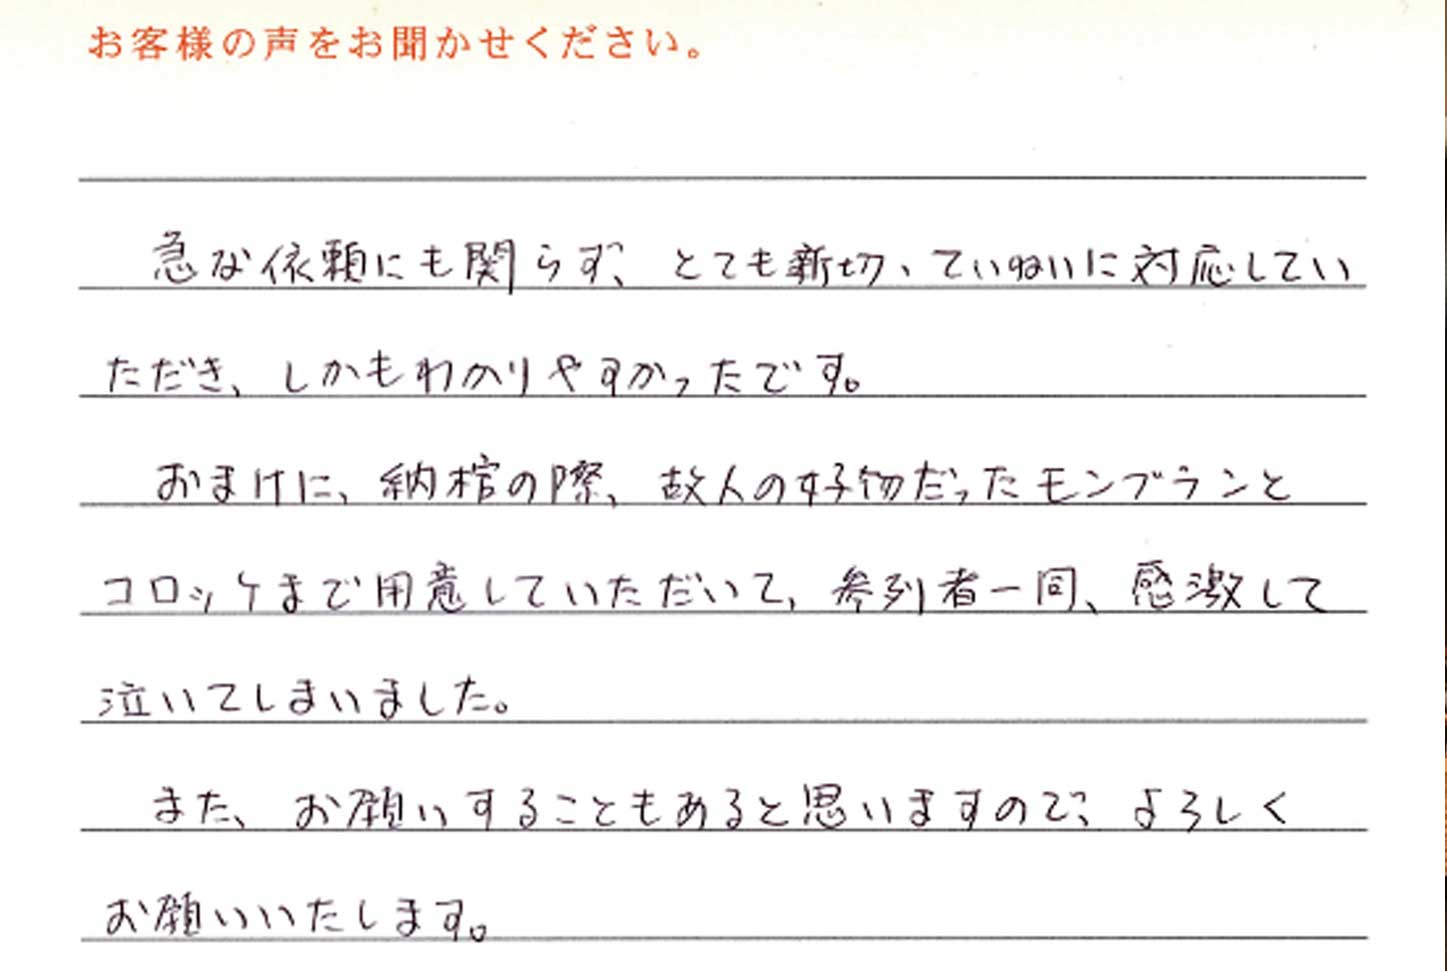 お客様の声をお聞かせください。
急な依頼にも関らず、とても新切、ていねいに対応してい
ただき、しかもわかりやすかったです。
おまけに、納棺の際、故人の好物だったモンブランと
コロッケまで用意していただいて、参列者一同、感激して
泣いてしまいました。
また、お願いすることもあると思いますので、よろしく
お願いいたします。